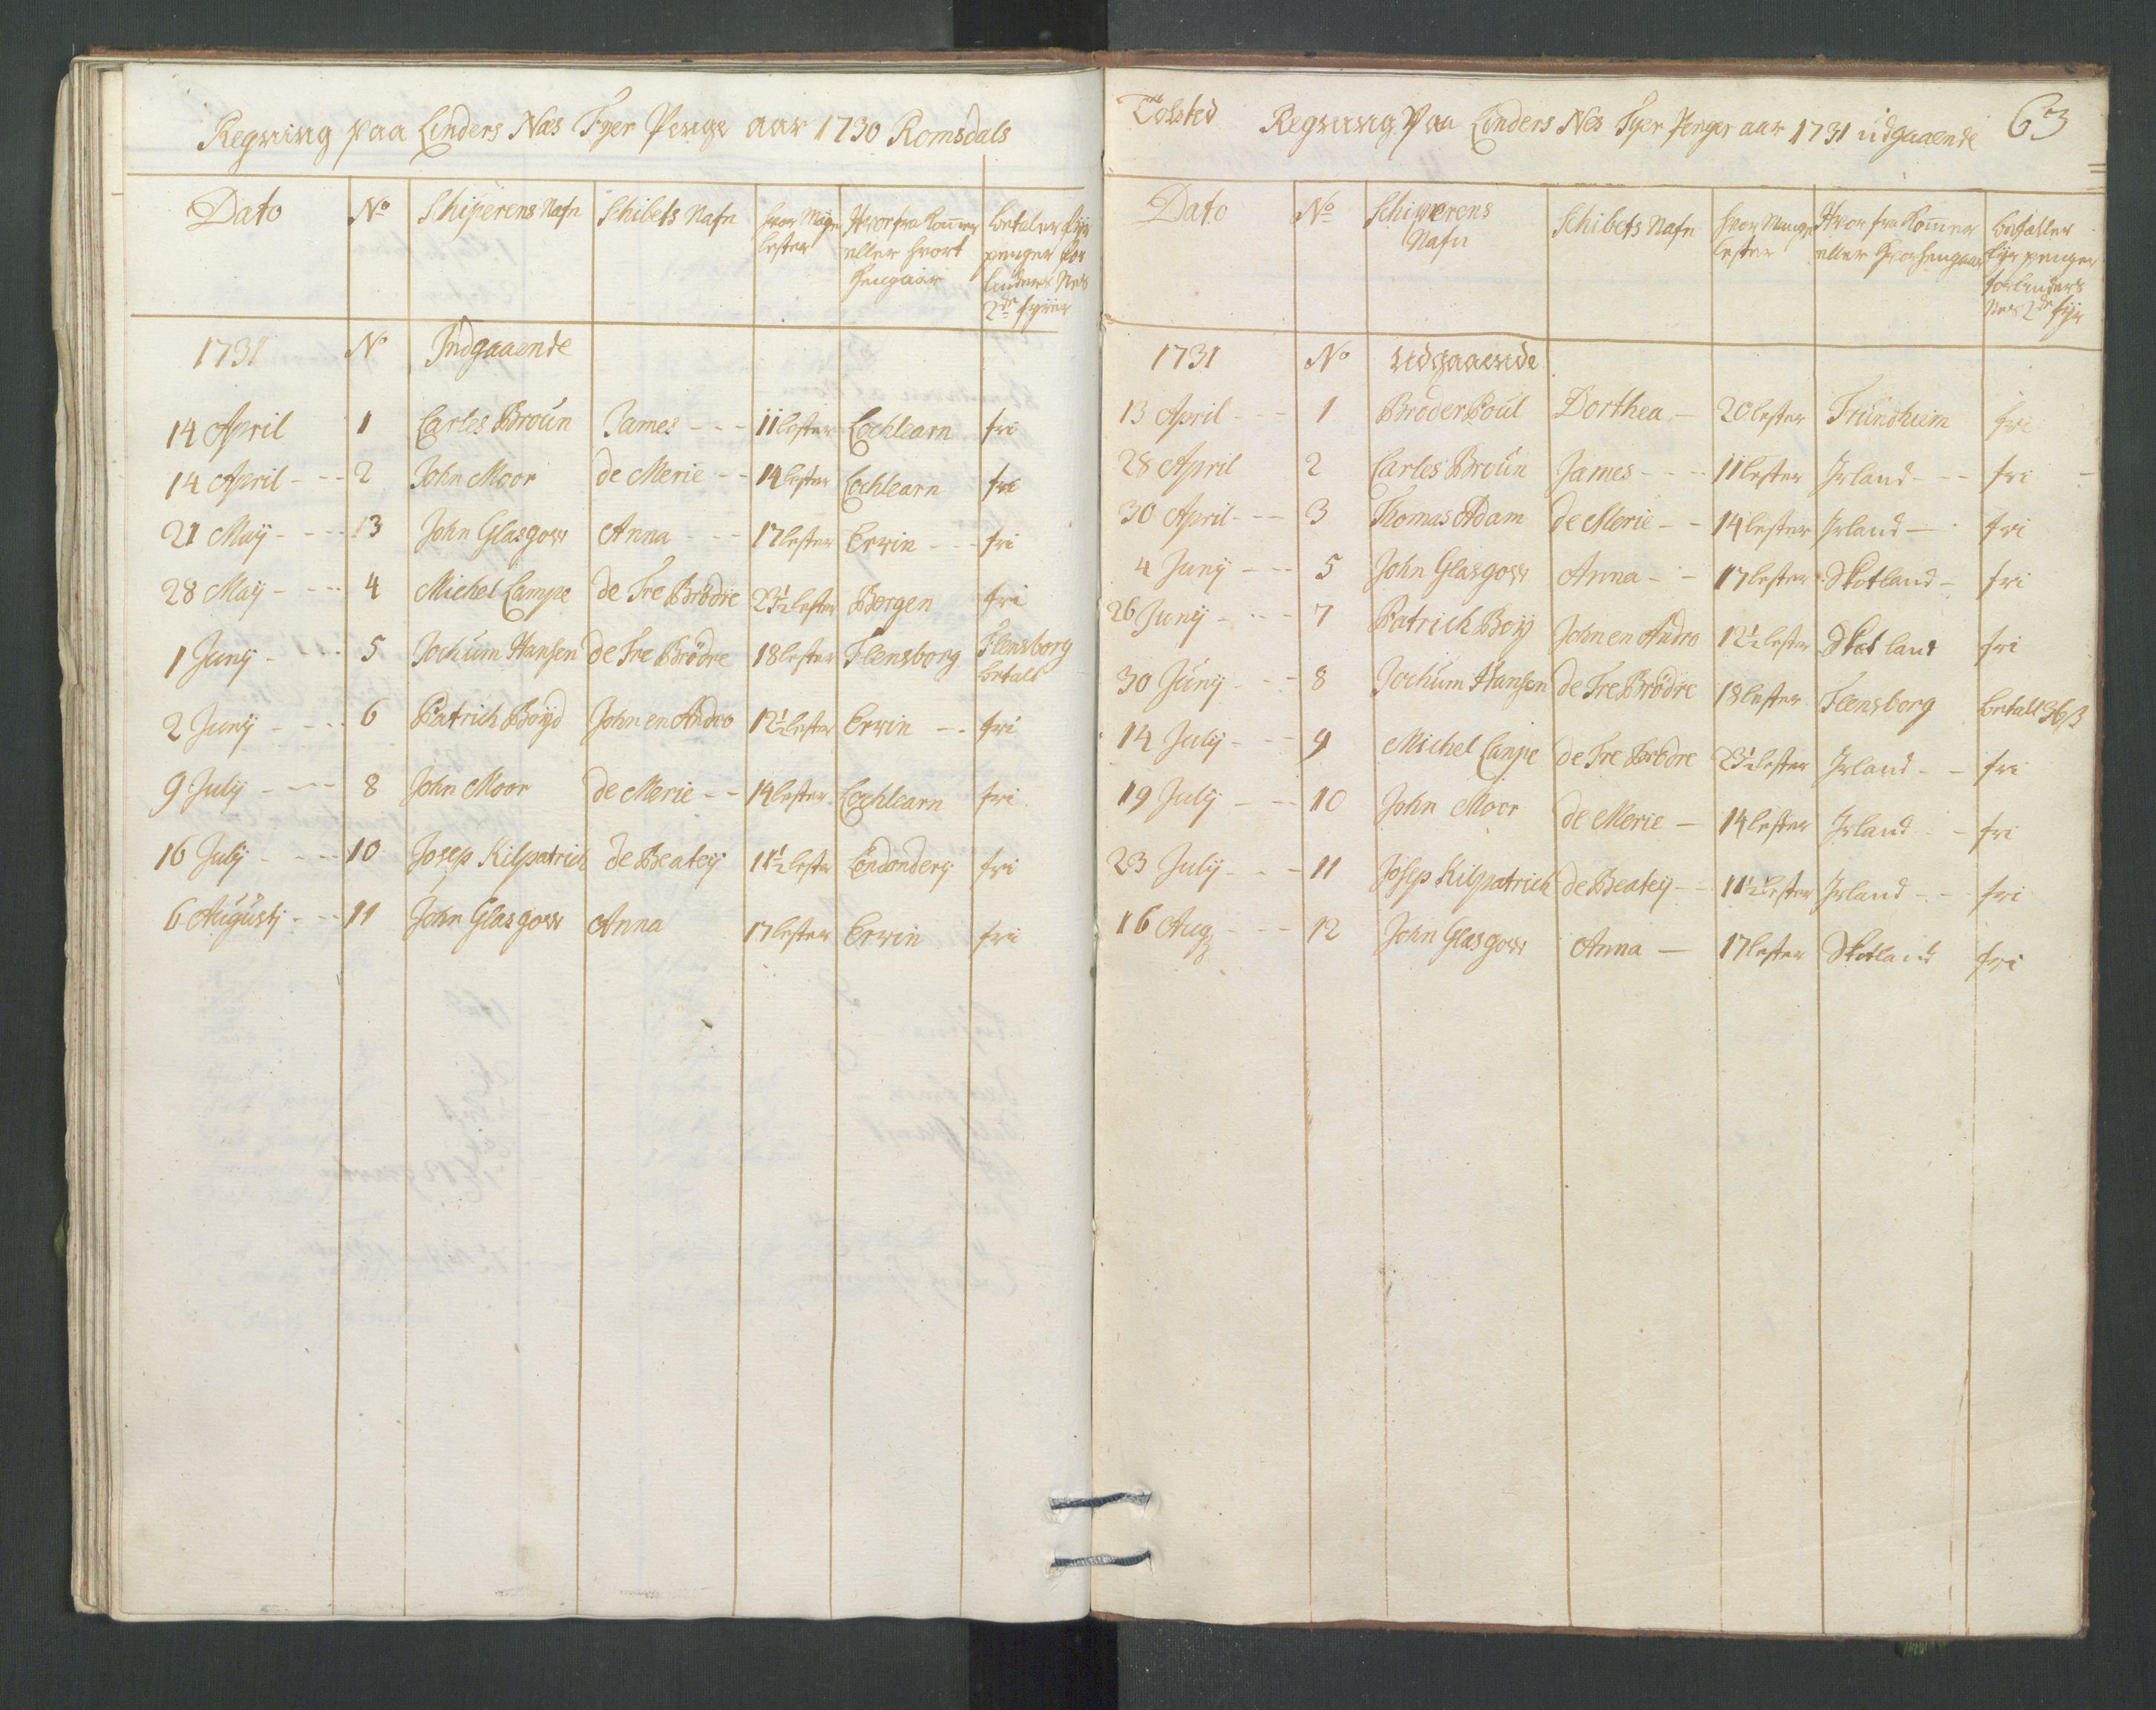 Regning paa Linders Næs Fyer Penge aar 1730 Romsdals
Dato No Skiperens Nafn Schibets Nafn hvor Mange lester Hvor fra kommer eller hvort hengaar betaler fyr penger for linders Nes 2de fyrer
1731 No Indgaaende
14 April 1 Carles Broun James 11 lester Cochlearn fri
14 April 2 John Moor de Merie 14 lester Cochlearn fri
21 Maÿ 3 John Glasgow Anna 17 lester Erwin fri
28 Maÿ 4 Michel Campe de Tre Brødre 23½ lester Bergen fri
1 Junÿ 5 Jochum Hansen de Tre Brödre 18 lester Flensborg Flensborg betalt
2 Junÿ 6 Patrich Boÿd John en Andro 12½ lester Erwin fri
9 Julÿ 8 John Moor de Merie 14 lester Cochlearn fri
16 Julÿ 10 Josep Kilpatrich de Beateÿ 11½ lester Londonderÿ fri
6 Augustj 11 John Glasgow Anna 17 lester Erwin fri
Tolsted Regning Paa Linders Nes Fyer Penger aar 1731 udgaaende 63
Dato No Schiperens Nafn Schibets Nafn hvor Mange lester Hvor fra kommer eller hvor hengaar betaller fÿr penger for linders Nes 2de fÿr
1731 No udgaaende
13 April 1 Broder Poul Dorthea 20 lester Trundhiem fri
28 April 2 Carles Broun James 11 lester Irland fri
30 April 3 Thomas Adam de Merie 14 lester Irland fri
4 Junÿ 5 John Glasgow Anna 17 lester Skotland fri
26 Junÿ 7 Patrich Boÿ John en Andro 12½ lester Skotland fri
30 Junÿ 8 Jochum Hansen de Tre Brödre 18 lester Flensborg betalt 36 ß
14 Julÿ 9 Michel Campe de Tre Brødre 23½ lester Irland fri
19 Julÿ 10 John Moor de Merie 14 lester Irland fri
23 Julÿ 11 Josep Kilpatrich de Beateÿ 11½ lester Irland fri
16 Aug 12 John Glasgow Anna 17 lester Skotland fri